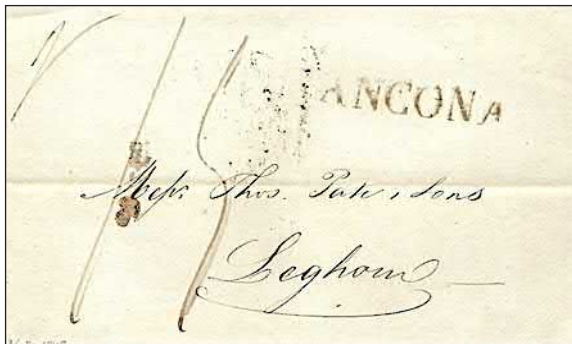 ANCONA
Mess. Thos. Pate & Sons
Leghorn